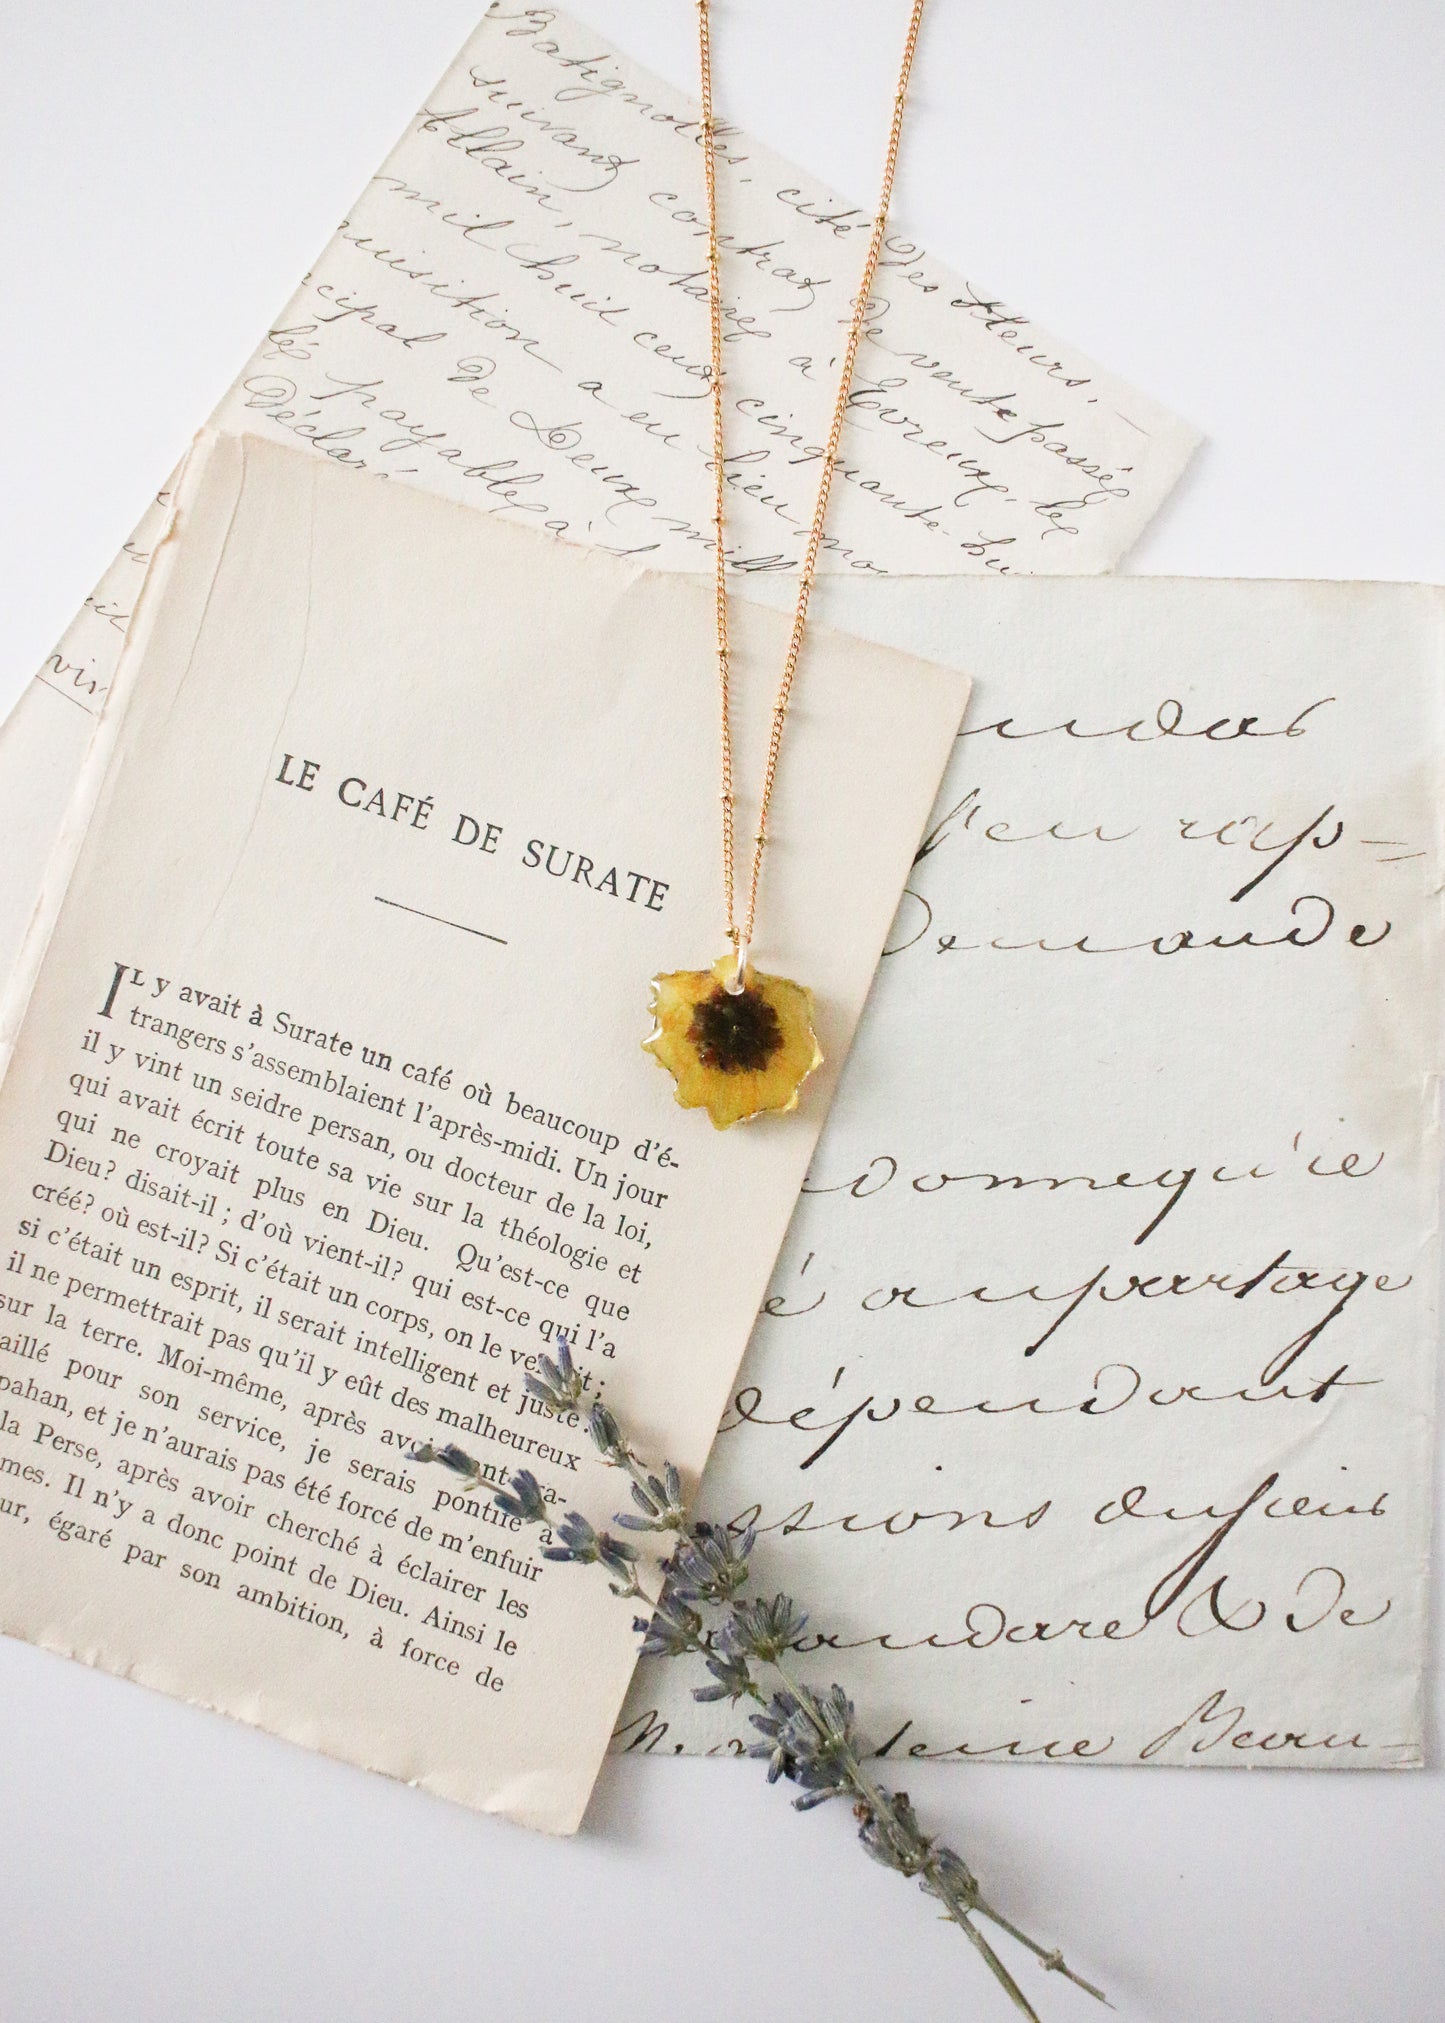 Batignolles, cité des fleurs,
suivant contrat de vente passée
Allain, notaire à Evreux, le
mil huit cent cinquante-hui
quisition a eu lieu mo
cipal de Deux mill
les payables à
Déclar
vin
LE CAFÉ DE SURATE
IL y avait à Surate un café où beaucoup d'é-
trangers s'assemblaient l'après-midi. Un jour
il y vint un seidre persan, ou docteur de la loi,
qui avait écrit toute sa vie sur la théologie et
qui ne croyait plus en Dieu. Qu'est-ce que
Dieu? disait-il ; d'où vient-il? qui est-ce qui l'a
créé? où est-il? Si c'était un corps, on le ve it ;
si c'était un esprit, il serait intelligent et juste.
il ne permettrait pas qu'il y eût des malheureux
sur la terre. Moi-même, après avoi ant ra-
aillé pour son service, je serais pontife à
pahan, et je n'aurais pas été forcé de m'enfuir
la Perse, après avoir cherché à éclairer les
mes. Il n'y a donc point de Dieu. Ainsi le
ur, égaré par son ambition, à force de
l'en rap-
Demande
donne qu'ie
é au partage
dépendant
ssions du sieur
& de
Beau-